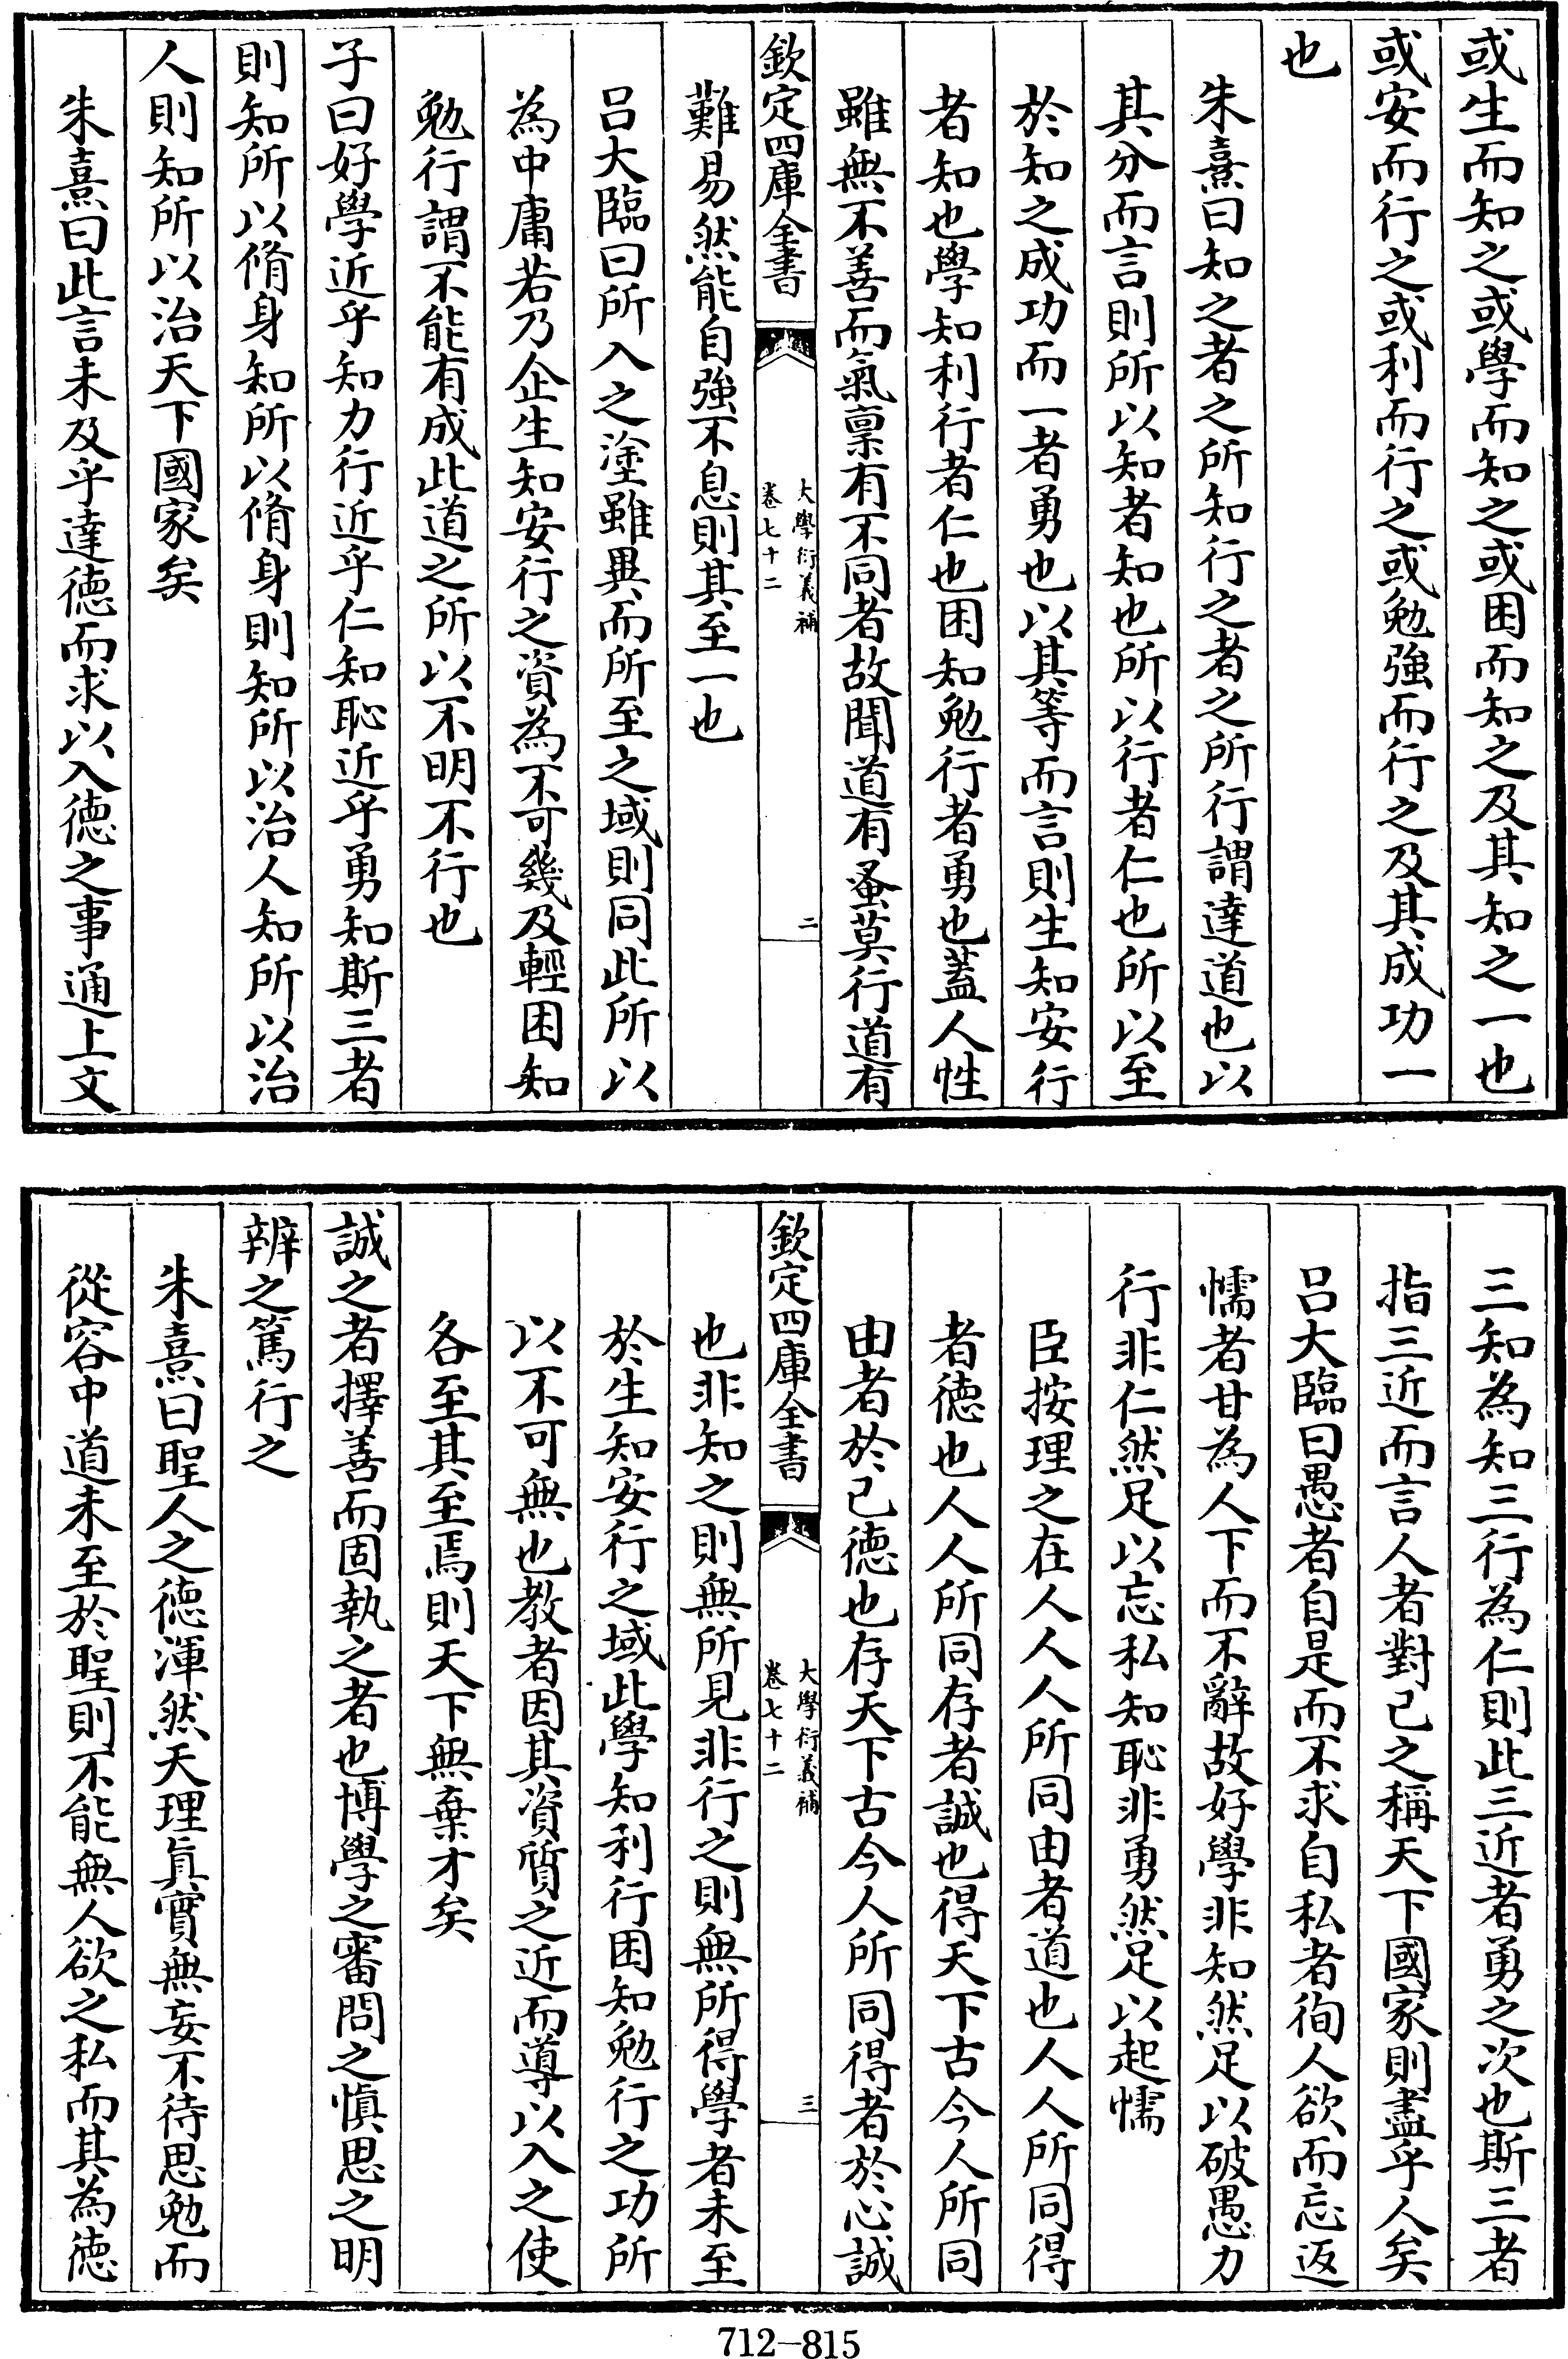 或生而知之或學而知之或困而知之及其知之一也
或安而行之或利而行之或勉強而行之及其成功一
也
朱熹曰知之者之所知行之者之所行謂達道也以
其分而言則所以知者知也所以行者仁也所以至
於知之成功而一者勇也以其等而言則生知安行
者知也學知利行者仁也困知勉行者勇也蓋人性
雖無不善而氣稟有不同者故聞道有蚤莫行道有
欽定四庫全書
大學衍義補
卷七十二
二
難易然能自強不息則其至一也
呂大臨曰所入之塗雖異而所至之域則同此所以
為中庸若乃企生知安行之資為不可幾及輕困知
勉行謂不能有成此道之所以不明不行也
子曰好學近乎知力行近乎仁知恥近乎勇知斯三者
則知所以脩身知所以脩身則知所以治人知所以治
人則知所以治天下國家矣
朱熹曰此言未及乎達德而求以入德之事通上文
三知為知三行為仁則此三近者勇之次也斯三者
指三近而言人者對已之稱天下國家則盡乎人矣
呂大臨曰愚者自是而不求自私者徇人欲而忘返
懦者甘為人下而不辭故好學非知然足以破愚力
行非仁然足以忘私知恥非勇然足以起懦
臣按理之在人人人所同由者道也人人所同得
者德也人人所同存者誠也得天下古今人所同
由者於已德也存天下古今人所同得者於心誠
欽定四庫全書
大學衍義補
卷七十二
三
也非知之則無所見非行之則無所得學者未至
於生知安行之域此學知利行困知勉行之功所
以不可無也教者因其資質之近而導以入之使
各至其至焉則天下無棄才矣
誠之者擇善而固執之者也博學之審問之慎思之明
辨之篤行之
朱熹曰聖人之德渾然天理真實無妄不待思勉而
從容中道未至於聖則不能無人欲之私而其為德
712-815